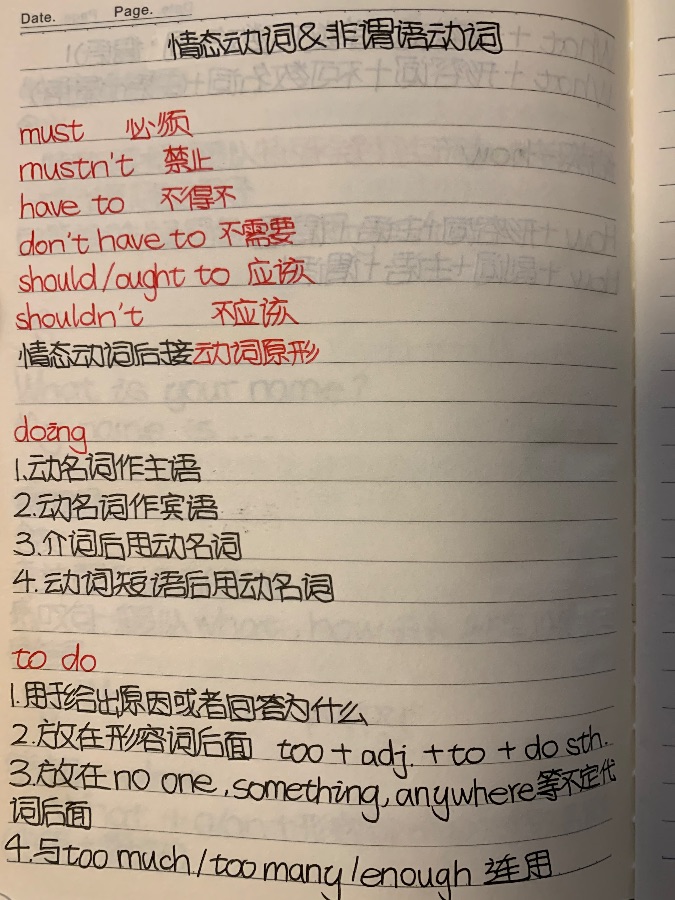 Date. Page.
情态动词&非谓语动词
must 必须
mustn't 禁止
have to 不得不
don't have to 不需要
should/ought to 应该
shouldn't 不应该
情态动词后接动词原形
doing
1.动名词作主语
2.动名词作宾语
3.介词后用动名词
4.动词短语后用动名词
to do
1.用于给出原因或者回答为什么
2.放在形容词后面 too + adj. + to + do sth.
3.放在 no one, something, anywhere等不定代
词后面
4.与too much/too many/enough 连用